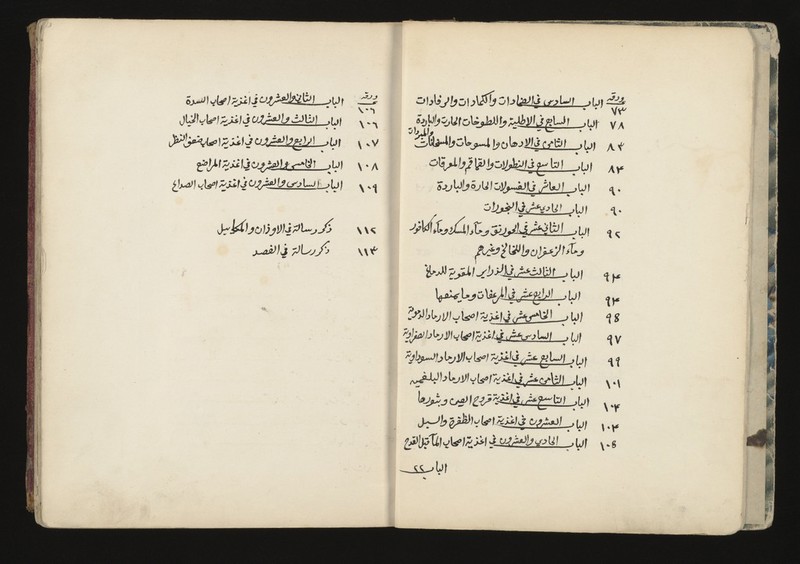 ورقه
٧٣ الباب السادس في الضمادات والكمادات والرفادات
٧٨ الباب السابع في الاطلية واللطوخات الحارة والباردة
٨٣ الباب الثامن في الادهان والمسوحات والمبردات
٨٤ الباب التاسع في النطولات والقماقم والمعرقات
٩٠ الباب العاشر في الغسولات الحارة والباردة
٩٠ الباب الحادي عشر في البخورات
٩٢ الباب الثاني عشر في وماء المسك وماء الكافور
وماء الزعفران واللخالخ وغيرهم
٩٤ الباب الثالث عشر في الذراير المقوية للدماغ
٩٤ الباب الرابع عشر في المرعفات وما يمنعها
٩٥ الباب الخامس عشر في اغذية اصحاب الارماد الدموية
٩٧ الباب السادس عشر في اغذية اصحاب الارماد الصفراوية
٩٩ الباب السابع عشر في اغذية اصحاب الارماد السوداوية
١٠١ الباب الثامن عشر في اغذية اصحاب الارماد البلغميه
١٠٤ الباب التاسع عشر في اغذية قروح العين وبثورها
١٠٤ الباب العشرون في اغذية اصحاب الظفرة والسبل
١٠٥ الباب الحادي والعشرون في اغذية اصحاب الماء قبل القدح
الباب ٢٢
ورقه
١٠٦ الباب الثاني والعشرون في اغذية اصحاب السدة
١٠٦ الباب الثالث والعشرون في اغذية اصحاب الخيال
١٠٧ الباب الرابع والعشرون في اغذية اصحاب ضعف النظر
١٠٨ الباب الخامس والعشرون في اغذية المراضع
١٠٩ الباب السادس والعشرون في اغذية اصحاب الصداع
١١٢ ذكر رسالة في الاوزان والمكاييل
١١٤ ذكر رسالة في الفصد